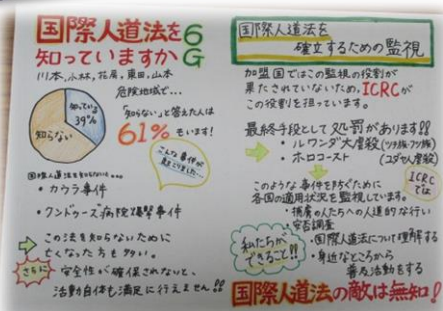 国際人道法を
知っていますか
6G
川本,小林,花房,東田,山本
危険地域で...
知っている
39%
知らない
「知らない」と答えた人は
61%もいます!
こんな事件が
起こりました…
国際人道法を知らないと…
・カウラ事件
・クンドゥーズ病院爆撃事件
この法を知らないために
亡くなった方も多い。
さらに
安全性が確保されないと、
活動自体も満足に行えません!!
国際人道法を
確立するための監視
加盟国ではこの監視の役割が
果たされていないため、ICRCが
この役割を担っています。
最終手段として処罰があります!!
・ルワンダ大虐殺(ツチ族・フツ族)
・ホロコースト(ユダヤ人虐殺)
ICRC
では
このような事件を防ぐために
各国の適用状況を監視しています。
・捕虜の人たちへの人道的な行い
・安否調査
私たちが
できること!!
・国際人道法について理解する
・身近なところから
普及活動をする
国際人道法の敵は無知!